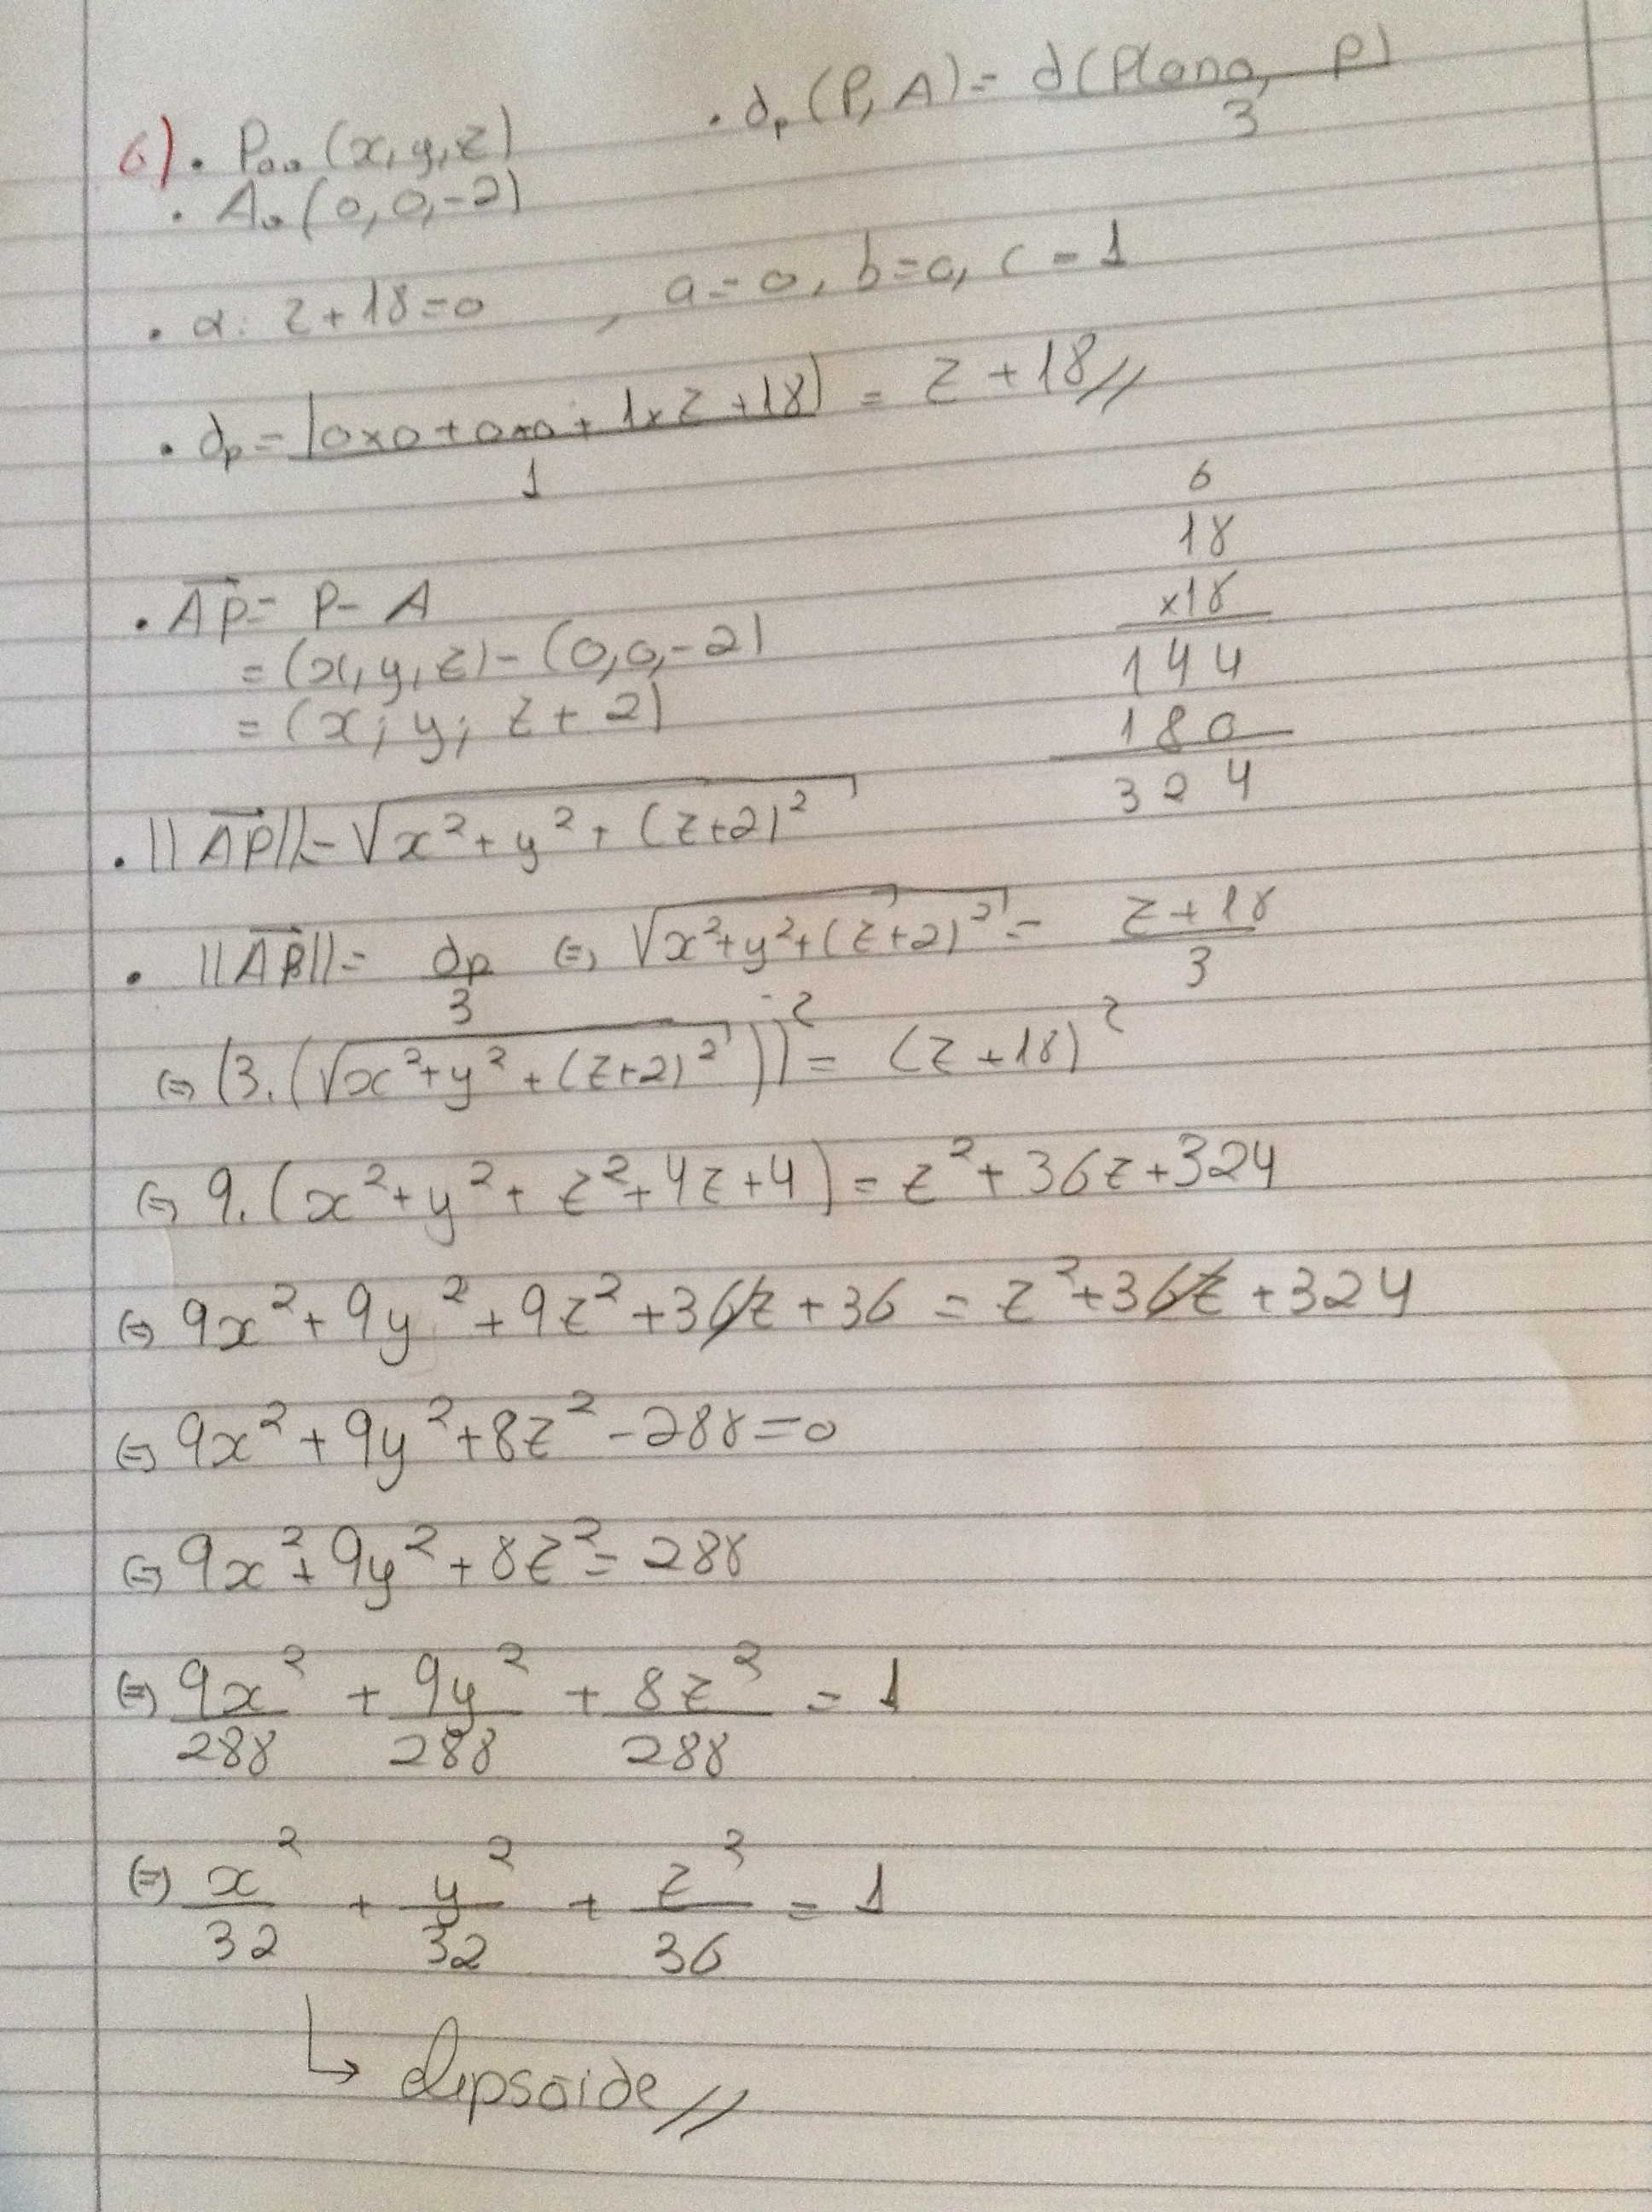 6) . P.. (x, y, z)
. dp (P, A) = d(Plano, P) / 3
. A. (0, 0, -2)
. α: z + 18 = 0 , a = 0, b = 0, c = 1
. dp = |0x0 + 0x0 + 1xz + 18| / 1 = z + 18 //
6
18
x18
144
180
324
. AP = P - A
= (x, y, z) - (0, 0, -2)
= (x; y; z + 2)
. ||AP|| = √x² + y² + (z+2)²
. ||AP|| = dp / 3 (=) √x² + y² + (z+2)² = z + 18 / 3
(=) (3.(√x² + y² + (z+2)²))² = (z + 18)²
(=) 9.(x² + y² + z² + 4z + 4) = z² + 36z + 324
(=) 9x² + 9y² + 9z² + 36z + 36 = z² + 36z + 324
(=) 9x² + 9y² + 8z² - 288 = 0
(=) 9x² + 9y² + 8z² = 288
(=) 9x² / 288 + 9y² / 288 + 8z² / 288 = 1
(=) x² / 32 + y² / 32 + z² / 36 = 1
↳ elipsoide //